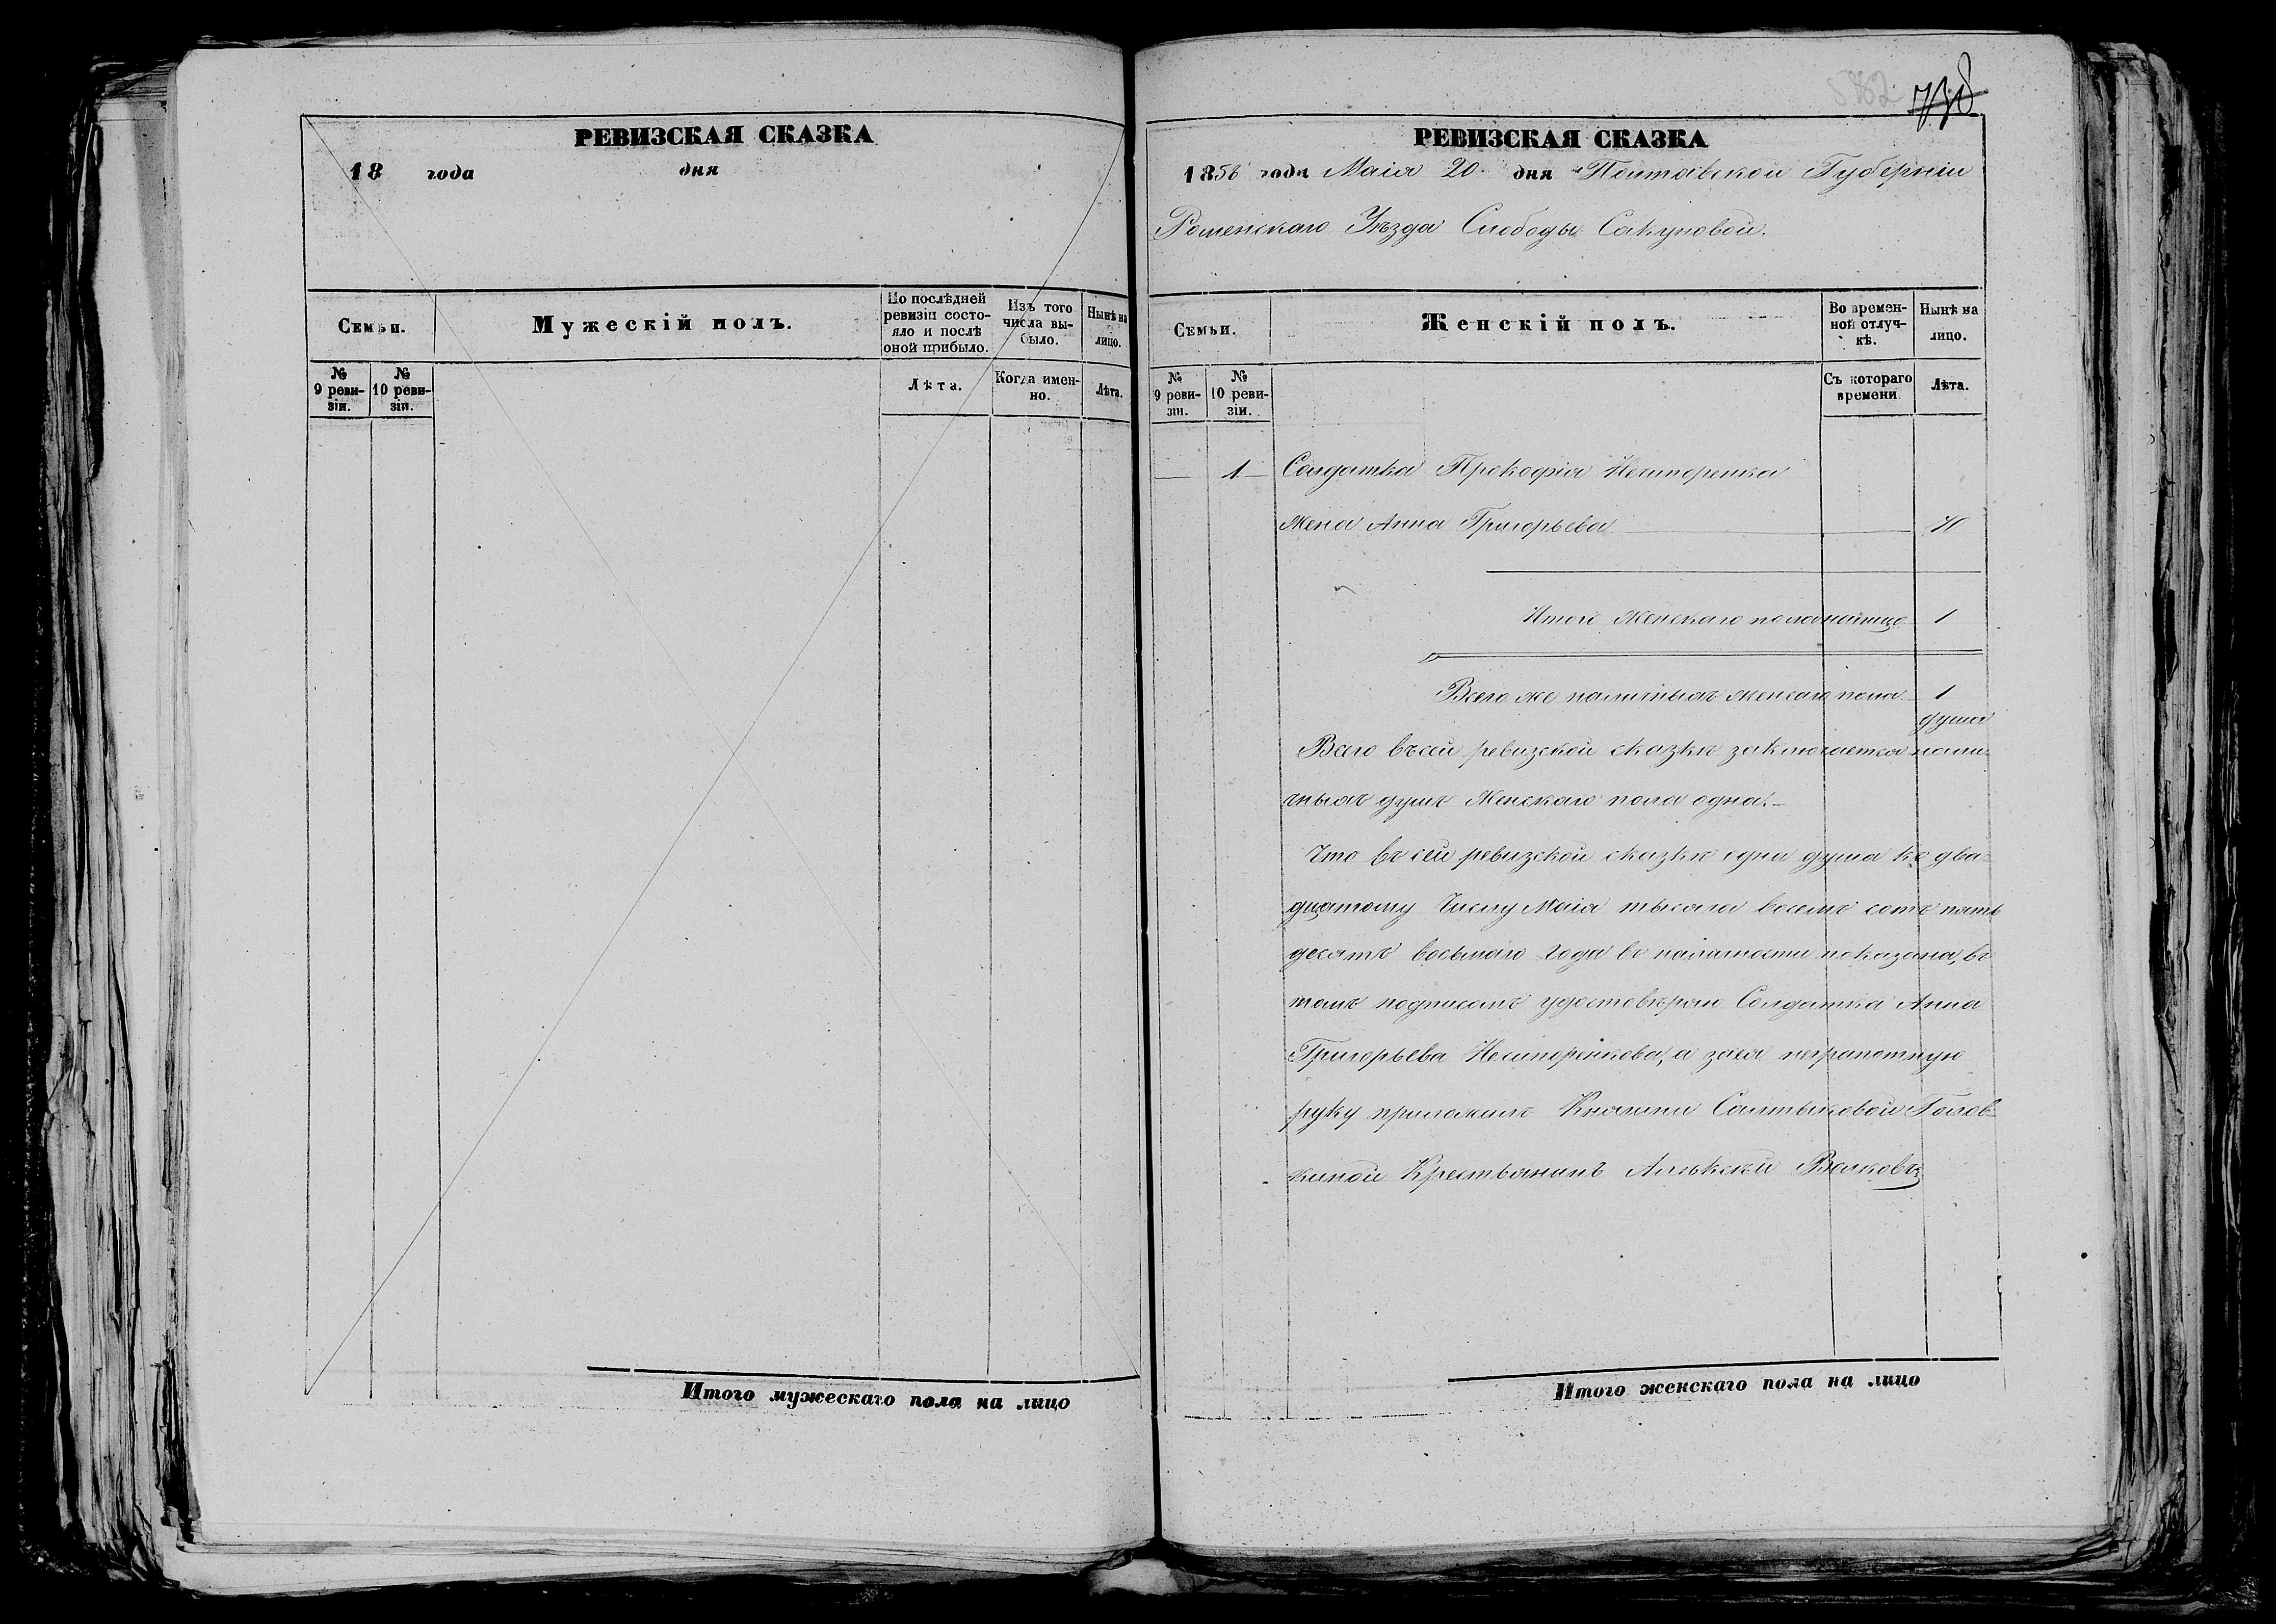 РЕВИЗСКАЯ СКАЗКА
18 года дня
Семьи.
Мужескій полъ.
По послѣдней ревизіи состояло и послѣ оной прибыло.
Изъ того числа выбыло.
Нынѣ на лицо.
№ 9 ревизіи.
№ 10 ревизіи.
Лѣта.
Когда именно.
Лѣта.
Итого мужескаго пола на лицо
РЕВИЗСКАЯ СКАЗКА
1858 года Маія 20 дня Полтавской Губерніи
Роменскаго Уѣзда Слободы Сакуновой.
Семьи.
Женскій полъ.
Во временной отлучкѣ.
Нынѣ на лицо.
№ 9 ревизіи.
№ 10 ревизіи.
Съ котораго времени
Лѣта.
1 Солдатка Прокофія Несторенка
жена Анна Григорьева
Итого Женскаго пола налицо 1
Всего же наличныхъ женскаго пола 1
душа
Всего въ сей ревизской сказкѣ заключается нали-
чныхъ душъ Женскаго пола одна.
Что въ сей ревизской сказкѣ одна душа къ два-
дцатому Числу Маія тысяча восемъ сотъ пять
десятъ восьмаго года въ наличности показана, въ
томъ подписомъ удостовѣряю Солдатка Анна
Григорьева Несторенкова, а за ея неграмотную
руку приложилъ Княгини Салтыковой Голов-
киной Крестьянинъ Алѣксѣй Волковъ
Итого женскаго пола на лицо